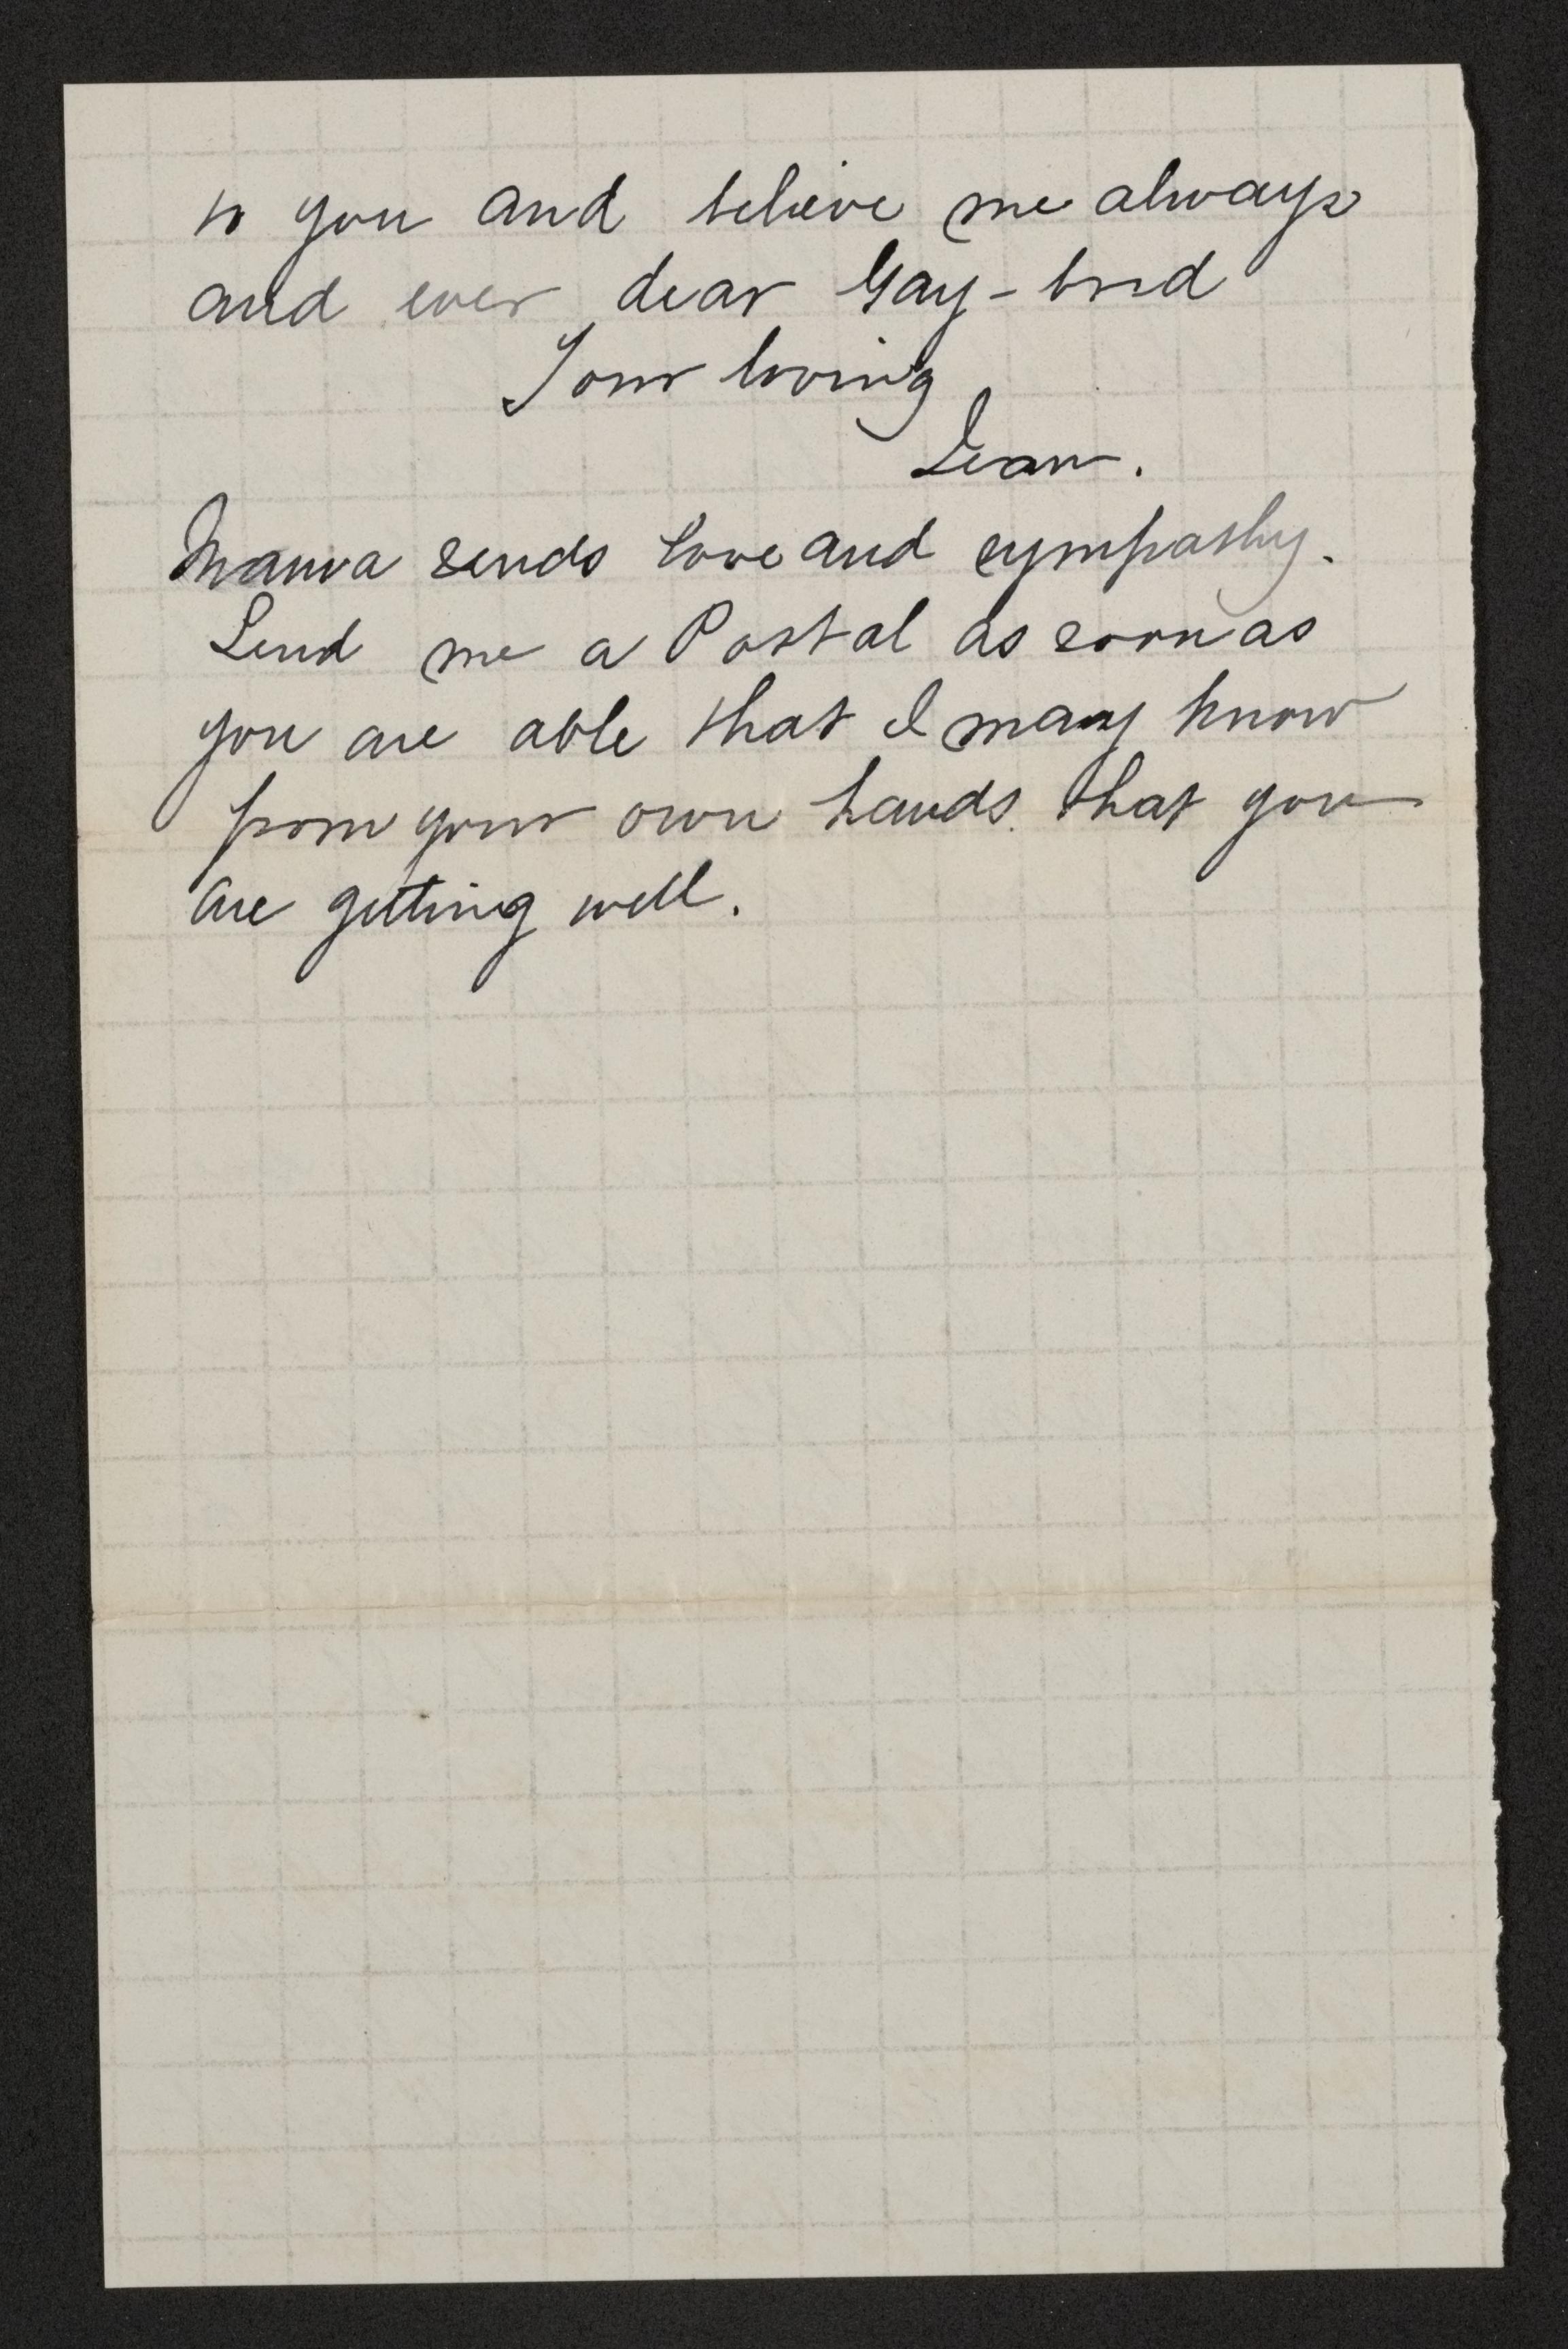 to you and believe me always
and ever dear Gay-bird
Your loving
Jean.
Mama sends love and sympathy.
Send me a Postal as soon as
you are able that I may know
from your own hands that you
are getting well.